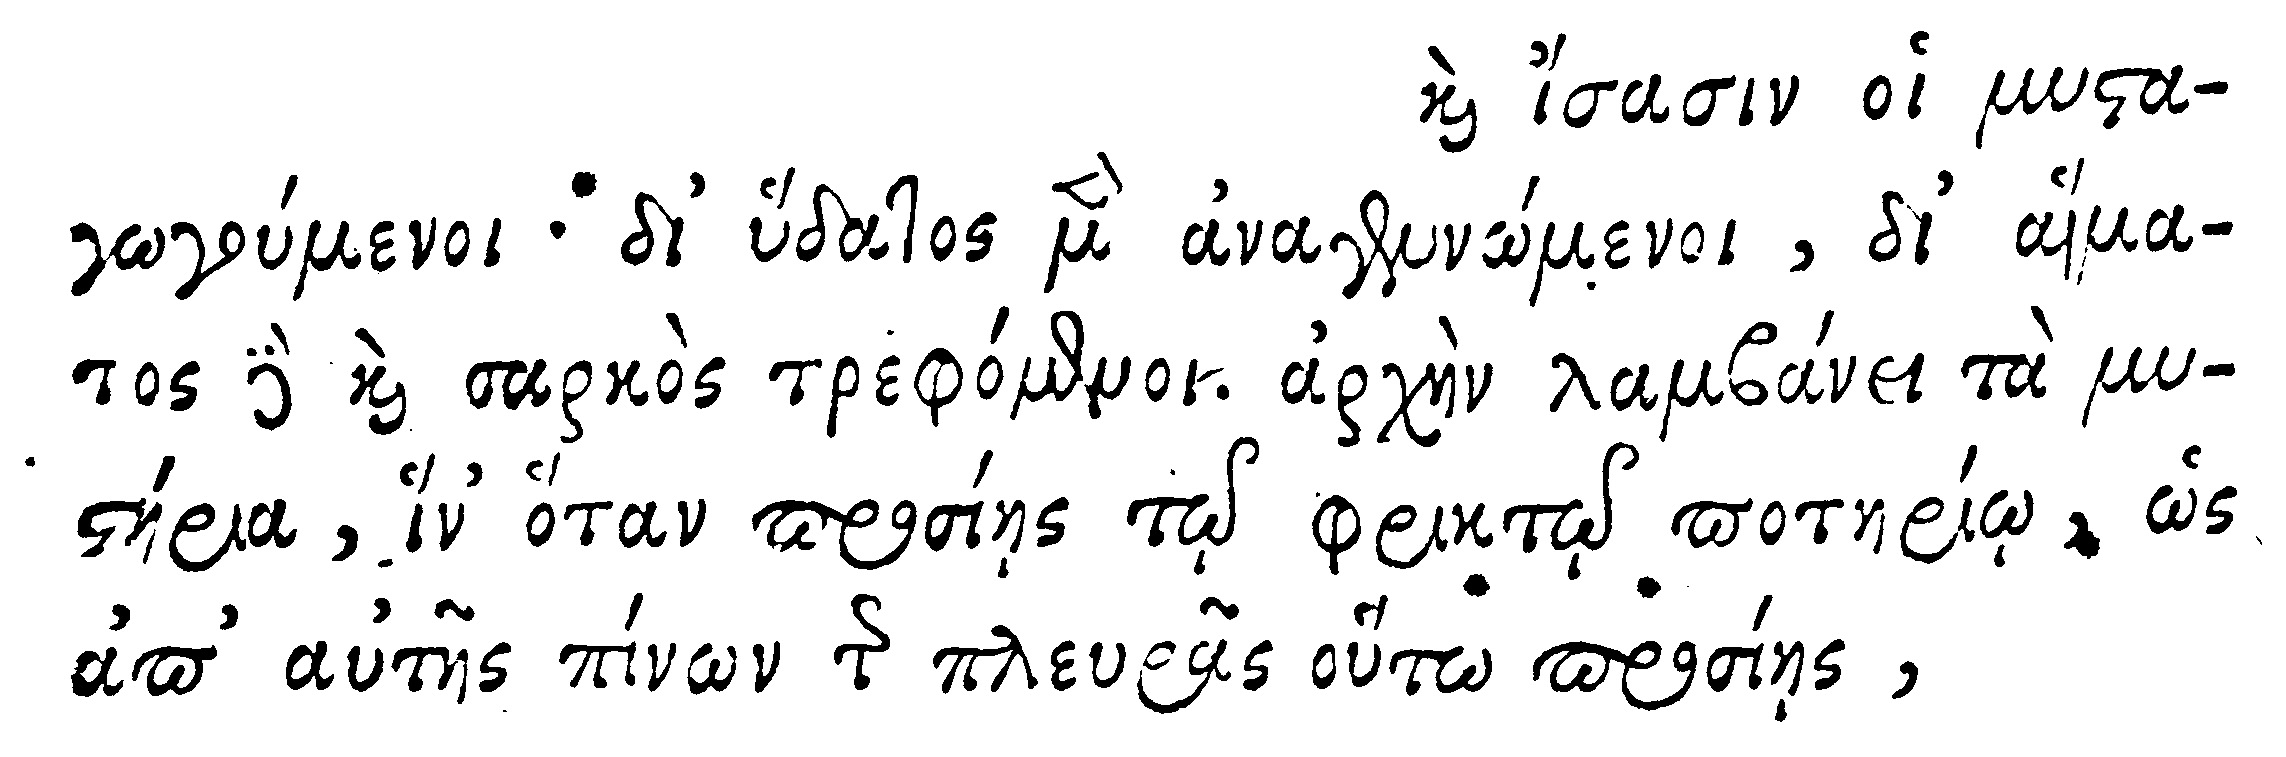 ϗ̀ ἴσασιν οἱ μυϛα-
γωγούμενοι · δι’ ὕδατος μὲν ἀναγεννώμενοι, δι’ αἵμα-
τος δὲ ϗ̀ σαρκὸς τρεφόμενοι. ἀρχὴν λαμβάνει τὰ μυ-
ϛήρια, ἵν’ ὅταν προσίῃς τῷ φρικτῷ ποτηρίῳ, ὡς
ἀπ’ αὐτῆς πίνων τῆς πλευρᾶς οὕτω προσίῃς,